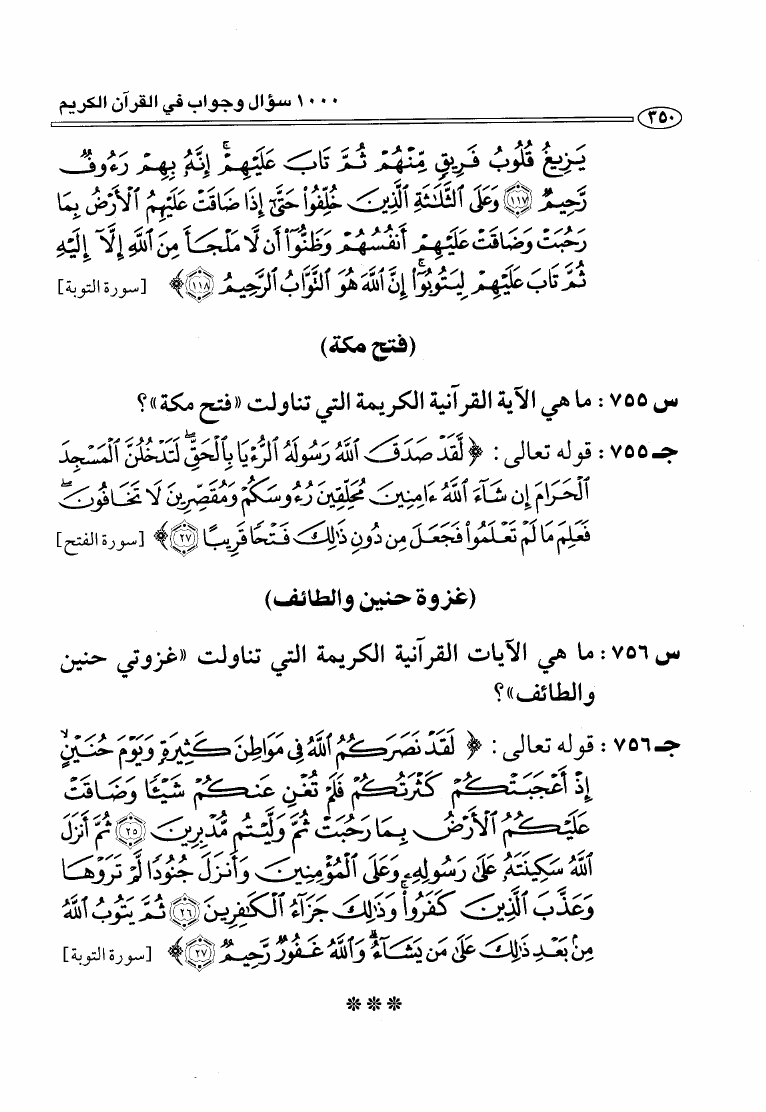 ١٠٠٠ سؤال وجواب في القرآن الكريم
٣٥٠
يَزِيغُ قُلُوبُ فَرِيقٍ مِّنْهُمْ ثُمَّ تَابَ عَلَيْهِمْ ۚ إِنَّهُ بِهِمْ رَءُوفٌ
رَّحِيمٌ ﴿١١٧﴾ وَعَلَى الثَّلَاثَةِ الَّذِينَ خُلِّفُوا حَتَّىٰ إِذَا ضَاقَتْ عَلَيْهِمُ الْأَرْضُ بِمَا
رَحُبَتْ وَضَاقَتْ عَلَيْهِمْ أَنفُسُهُمْ وَظَنُّوا أَن لَّا مَلْجَأَ مِنَ اللَّهِ إِلَّا إِلَيْهِ
ثُمَّ تَابَ عَلَيْهِمْ لِيَتُوبُوا ۚ إِنَّ اللَّهَ هُوَ التَّوَّابُ الرَّحِيمُ ﴿١١٨﴾ [سورة التوبة]
(فتح مكة)
س ٧٥٥ : ما هي الآية القرآنية الكريمة التي تناولت «فتح مكة»؟
جـ ٧٥٥ : قوله تعالى : ﴿ لَّقَدْ صَدَقَ اللَّهُ رَسُولَهُ الرُّءْيَا بِالْحَقِّ ۖ لَتَدْخُلُنَّ الْمَسْجِدَ
الْحَرَامَ إِن شَاءَ اللَّهُ ءَامِنِينَ مُحَلِّقِينَ رُءُوسَكُمْ وَمُقَصِّرِينَ لَا تَخَافُونَ ۖ
فَعَلِمَ مَا لَمْ تَعْلَمُوا فَجَعَلَ مِن دُونِ ذَٰلِكَ فَتْحًا قَرِيبًا ﴿٢٧﴾ [سورة الفتح]
(غزوة حنين والطائف)
س ٧٥٦ : ما هي الآيات القرآنية الكريمة التي تناولت «غزوتي حنين
والطائف»؟
جـ ٧٥٦ : قوله تعالى : ﴿ لَقَدْ نَصَرَكُمُ اللَّهُ فِي مَوَاطِنَ كَثِيرَةٍ ۙ وَيَوْمَ حُنَيْنٍ ۙ
إِذْ أَعْجَبَتْكُمْ كَثْرَتُكُمْ فَلَمْ تُغْنِ عَنكُمْ شَيْئًا وَضَاقَتْ
عَلَيْكُمُ الْأَرْضُ بِمَا رَحُبَتْ ثُمَّ وَلَّيْتُم مُّدْبِرِينَ ﴿٢٥﴾ ثُمَّ أَنزَلَ
اللَّهُ سَكِينَتَهُ عَلَىٰ رَسُولِهِ وَعَلَى الْمُؤْمِنِينَ وَأَنزَلَ جُنُودًا لَّمْ تَرَوْهَا
وَعَذَّبَ الَّذِينَ كَفَرُوا ۚ وَذَٰلِكَ جَزَاءُ الْكَافِرِينَ ﴿٢٦﴾ ثُمَّ يَتُوبُ اللَّهُ
مِن بَعْدِ ذَٰلِكَ عَلَىٰ مَن يَشَاءُ ۗ وَاللَّهُ غَفُورٌ رَّحِيمٌ ﴿٢٧﴾ [سورة التوبة]
***